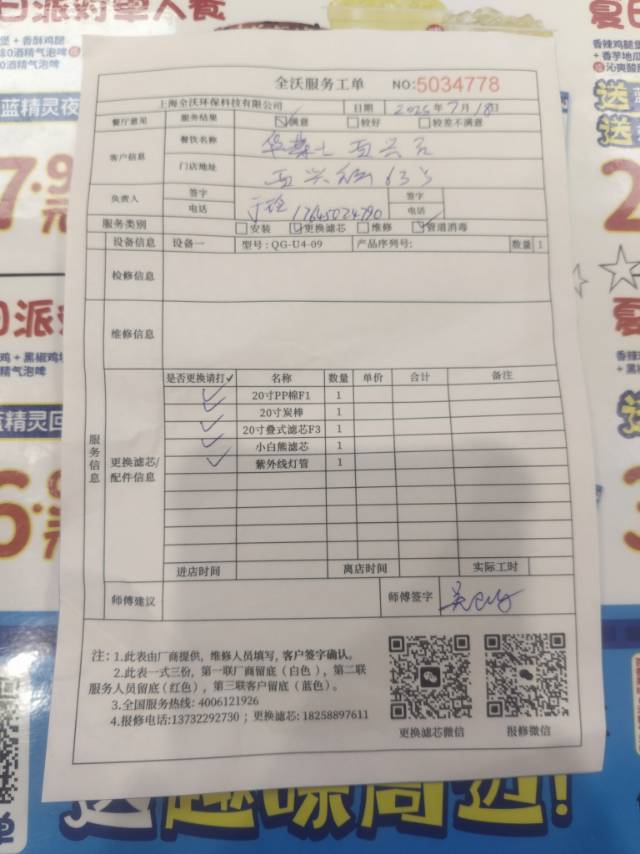 日派对单人餐
堡 + 香酥鸡腿
0酒精气泡啤
蓝精灵夜
7.9
元
夏日
香辣鸡腿堡
+ 香芋地瓜
沁爽酸
送
送
全沃服务工单 NO:5034778
上海全沃环保科技有限公司 日期 2025年7月18日
餐厅意见 服务结果 满意 较好 较差不满意
客户信息 餐饮名称 华莱士
门店地址 63号
负责人 签字 签字
电话 17645024790 电话
服务类别 安装 更换滤芯 维修 管道消毒
设备信息 设备一 型号: QG-U4-09 产品序列号: 数量 1
检修信息
维修信息
服务信息
更换滤芯/
配件信息
是否更换请打✓ 名称 数量 单价 合计 备注
✓ 20寸PP棉F1 1
✓ 20寸炭棒 1
✓ 20寸叠式滤芯F3 1
✓ 小白熊滤芯 1
✓ 紫外线灯管 1
进店时间 离店时间 实际工时
师傅建议 师傅签字
注: 1.此表由厂商提供, 维修人员填写, 客户签字确认。
2.此表一式三份, 第一联厂商留底(白色), 第二联
服务人员留底(红色), 第三联客户留底(蓝色)。
3.全国服务热线: 4006121926
4.报修电话:13732292730 ; 更换滤芯: 18258897611
更换滤芯微信 报修微信
送趣味周边!